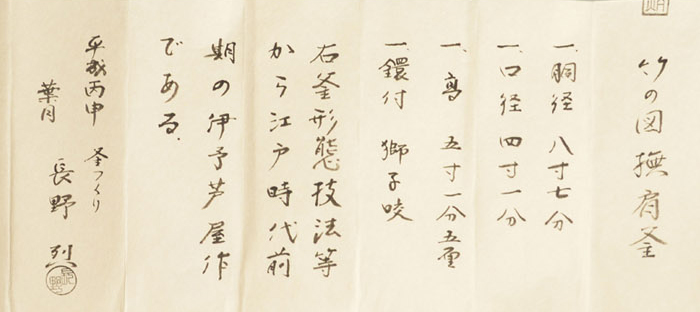 竹の図撫肩釜
一、胴径 八寸七分
一、口径 四寸一分
一、高 五寸一分五厘
一、鐶付 獅子咬
右釜形態技法等
から江戸時代前
期の伊予芦屋作
である。
平成丙申
葉月
釜つくり
長野 烈